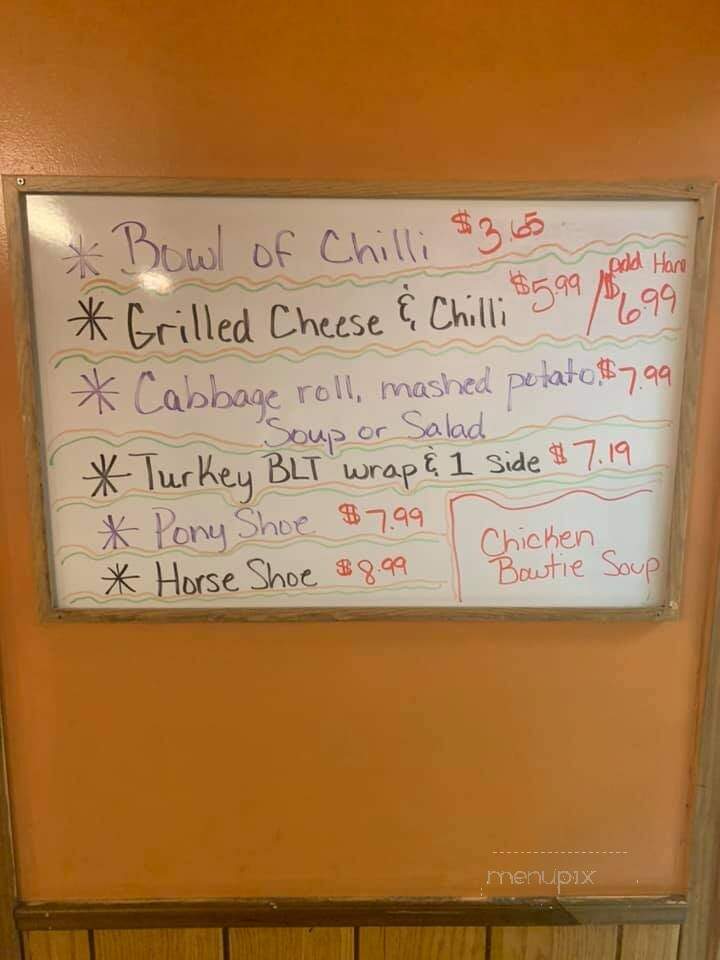 * Bowl of Chilli $3.65
* Grilled Cheese & Chilli $5.99 / add Ham $6.99
* Cabbage roll, mashed potato, $7.99
Soup or Salad
* Turkey BLT wrap & 1 Side $7.19
* Pony Shoe $7.99
* Horse Shoe $8.99
Chicken
Bowtie Soup
menupix